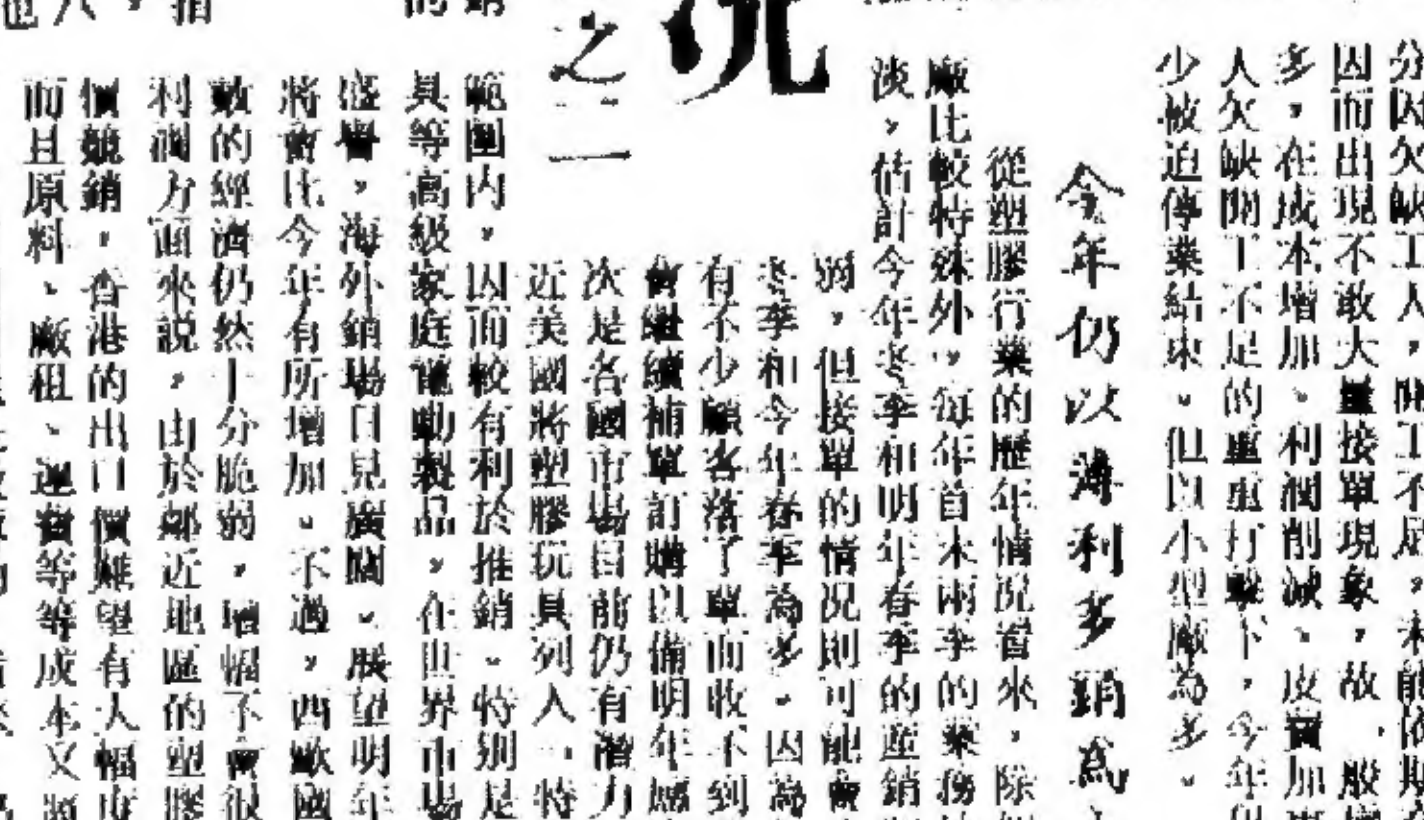 分因欠缺工人，開工不足，未能依期
因而出現不敢大量接單現象，故一般
多，在成本增加、利潤削減、皮費加
人欠缺開工不足的重重打擊下，今年
少被迫停業結束。但以小型廠為多。
今年仍以薄利多銷為
從塑膠行業的歷年情況看來，除
廠比較特殊外，每年首末兩季的業務
淡，估計今年冬季和明年春季的產銷
弱，但接單的情況則可能會
冬季和今年春季為多。因為
有不少顧客落了單而收不到
會繼續補單訂購以備明年
次是各國市場目前仍有潛力
近美國將塑膠玩具列入「特
況
之二
銷
的
範圍內，因而較有利於推銷。特別是
具等高級家庭電動製品，在世界市場
盛譽，海外銷場日見廣闊。展望明年
將會比今年有所增加。不過，西歐國
敵的經濟仍然十分脆弱，增幅不會很
利潤方面來說，由於鄰近地區的塑膠
價競銷，香港的出口價難望有大幅度
而且原料、廠租、運費等等成本又